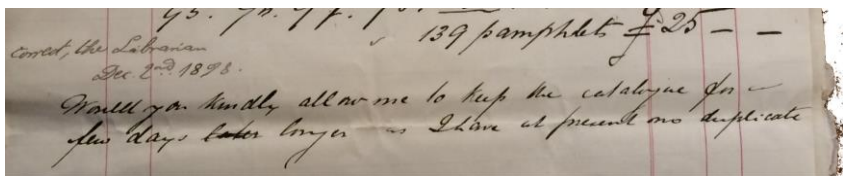 139 pamphlets £ 25 — —
Correct, the Librarian
Dec. 2nd 1898.
Would you kindly allow me to keep the catalogue for a
few days later longer as I have at present no duplicate